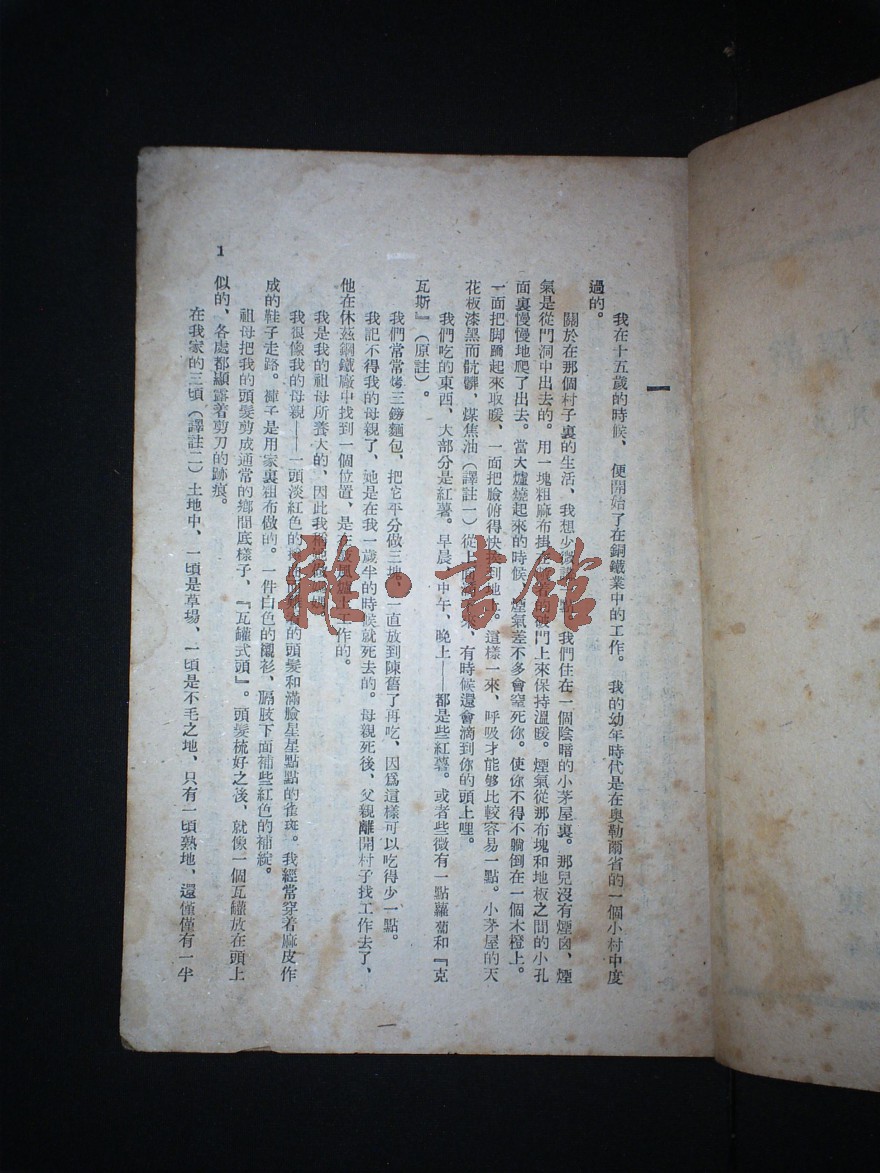 一
我在十五歲的時候、便開始了在鋼鐵業中的工作。我的幼年時代是在奧勒爾省的一個小村中度
過的。
關於在那個村子裏的生活、我想少微講一點。我們住在一個陰暗的小茅屋裏。那兒沒有煙囪、煙
氣是從門洞中出去的。用一塊粗麻布掛在 門上來保持溫暖。煙氣從那布塊和地板之間的小孔
面裏慢慢地爬了出去。當大爐燒起來的時候、煙氣差不多會窒死你。使你不得不躺倒在一個木櫈上。
一面把脚蹻起來取暖、一面把臉俯得快挨到地上。這樣一來、呼吸才能够比較容易一點。小茅屋的天
花板漆黑而骯髒、煤焦油(譯註一)從上面 來、有時候還會滴到你的頭上哩。
我們吃的東西、大部分是紅薯。早晨、中午、晚上——都是些紅薯。或者些微有一點蘿蔔和『克
瓦斯』(原註)。
我們常常烤三鎊麵包、把它平分做三塊、一直放到陳舊了再吃、因爲這樣可以吃得少一點。
我記不得我的母親了、她是在我一歲半的時候就死去的。母親死後、父親離開村子找工作去了、
他在休茲鋼鐵廠中找到一個位置、是在鼓風爐上工作的。
我是我的祖母所養大的、因此我 她做 。
我很像我的母親——一頭淡紅色的 的頭髮和滿臉星星點點的雀斑。我經常穿着麻皮作
成的鞋子走路。褲子是用家裏粗布做的。一件白色的襯衫、膈肢下面補些紅色的補綻。
祖母把我的頭髮剪成通常的鄉間底樣子、『瓦罐式頭』。頭髮梳好之後、就像一個瓦罐放在頭上
似的、各處都顯露着剪刀的跡痕。
在我家的三頃(譯註二)土地中、一頃是草場、一頃是不毛之地、只有一頃熟地、還僅僅有一半
1
一
雜·書館